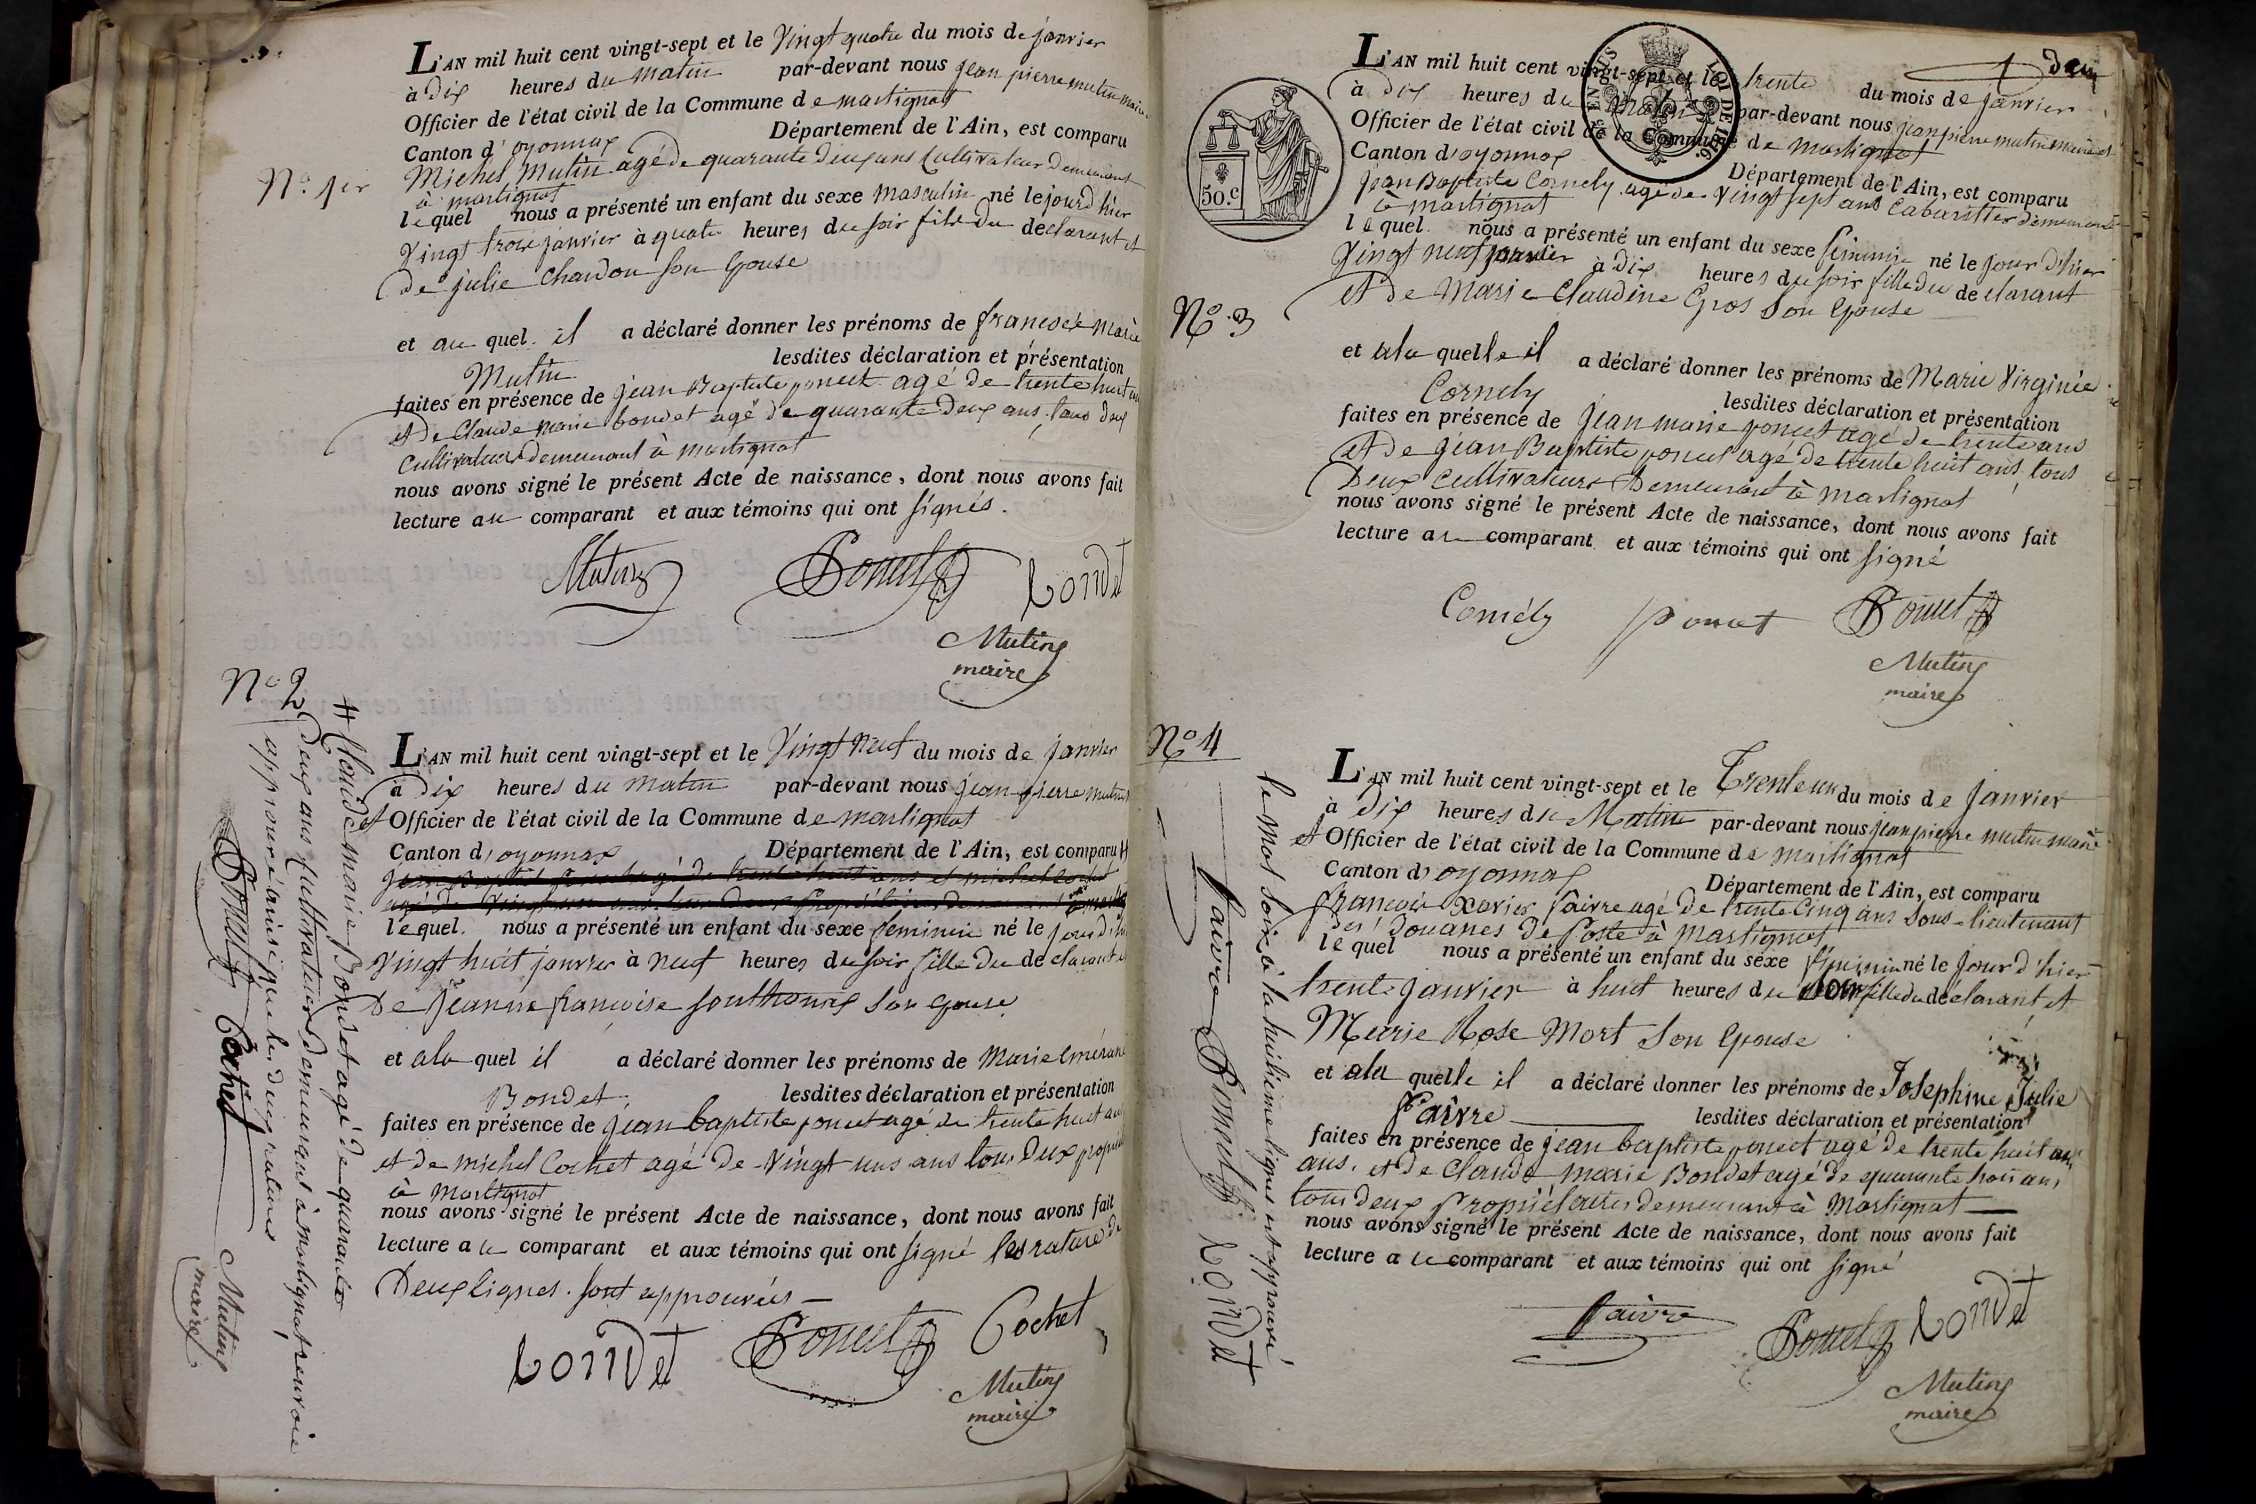 L'AN mil huit cent vingt-sept et le Vingt quatre du mois de janvier
à dix heures du matin par-devant nous jean pierre mutin maire
Officier de l'état civil de la Commune de martignat
Canton d'oyonnax Département de l'Ain, est comparu
N.o 1er Michel Mutin agé de quarante deux ans Cultivateur demeurant
à martignat
lequel nous a présenté un enfant du sexe masculin né le jourd'hier
Vingt trois janvier à quatre heures du soir fils du declarant et
de julie Chardon son Epouse
et au quel il a déclaré donner les prénoms de francois marie
Mutin lesdites déclaration et présentation
faites en présence de jean Baptiste poncet agé de trente huit ans
et de Claude marie bondet agé de quarante deux ans, tous deux
Cultivateurs demeurant à martignat
nous avons signé le présent Acte de naissance, dont nous avons fait
lecture au comparant et aux témoins qui ont signés.
Mutin Poncet Bondet
Mutin
maire
N.o 2
L'AN mil huit cent vingt-sept et le Vingt neuf du mois de janvier
à dix heures du matin par-devant nous jean pierre mutin
et Officier de l'état civil de la Commune de martignat
Canton d'oyonnax Département de l'Ain, est comparu #
lequel nous a présenté un enfant du sexe feminin né le jour d'hier
Vingt huit janvier à neuf heures du soir fille du declarant et
De Jeanne francoise Southonnax son Epouse
et a la quel il a déclaré donner les prénoms de Marie
Bondet, lesdites déclaration et présentation
faites en présence de jean baptiste poncet agé de trente huit ans
et de michel Cochet agé de Vingt uns ans tous deux
à martignat
nous avons signé le présent Acte de naissance, dont nous avons fait
lecture au comparant et aux témoins qui ont signé les rature de
Deux lignes sont approuvées
Bondet Poncet Cochet
Mutin
maire
# Claude marie Bondet agé de quarante
deux ans Cultivateur demeurant à martignat renvoie
approuvé ainsi que les deux ratures
Poncet Cochet Mutin
maire
1 deux
50.c
LOI DE 1816.
L'AN mil huit cent vingt-sept et le trente du mois de janvier
à dix heures du matin par-devant nous jean pierre mutin maire et
Officier de l'état civil de la Commune de martignat
Canton d'oyonnax Département de l'Ain, est comparu
Jean Baptiste Cornely agé de Vingt sept ans Cabaretier demeurant
à martignat
lequel nous a présenté un enfant du sexe feminin né le jour d'hier
Vingt neuf janvier à dix heures du soir fille du declarant
et de Marie Claudine Gros son Epouse
N.o 3
et a la quelle il a déclaré donner les prénoms de Marie Virginie
Cornely lesdites déclaration et présentation
faites en présence de Jean marie poncet agé de trente ans
et de jean Baptiste poncet agé de trente huit ans, tous
Deux Cultivateurs Demeurant à martignat
nous avons signé le présent Acte de naissance, dont nous avons fait
lecture au comparant et aux témoins qui ont signé
Cornély poncet Poncet
Mutin
maire
N.o 4
L'AN mil huit cent vingt-sept et le Trente un du mois de janvier
à dix heures du Matin par-devant nous jean pierre mutin maire
et Officier de l'état civil de la Commune de martignat
Canton d'oyonnax Département de l'Ain, est comparu
francois xavier faivre agé de trente Cinq ans Sous-lieutenant
des Douanes de Poste à Martignat
lequel nous a présenté un enfant du sexe feminin né le Jour d'hier
trente janvier à huit heures du soir fille du declarant et
Marie Rose Mort Son Epouse
et a la quelle il a déclaré donner les prénoms de Josephine Julie
faivre lesdites déclaration et présentation
faites en présence de jean baptiste poncet agé de trente huit ans
ans, et de Claude marie Bondet agé de quarante trois ans
tous deux Propriétaires demeurant à Martignat
nous avons signé le présent Acte de naissance, dont nous avons fait
lecture au comparant et aux témoins qui ont signé
faivre Poncet Bondet
Mutin
maire
le mot soir à la huitieme ligne est approuvé
faivre Poncet Bondet